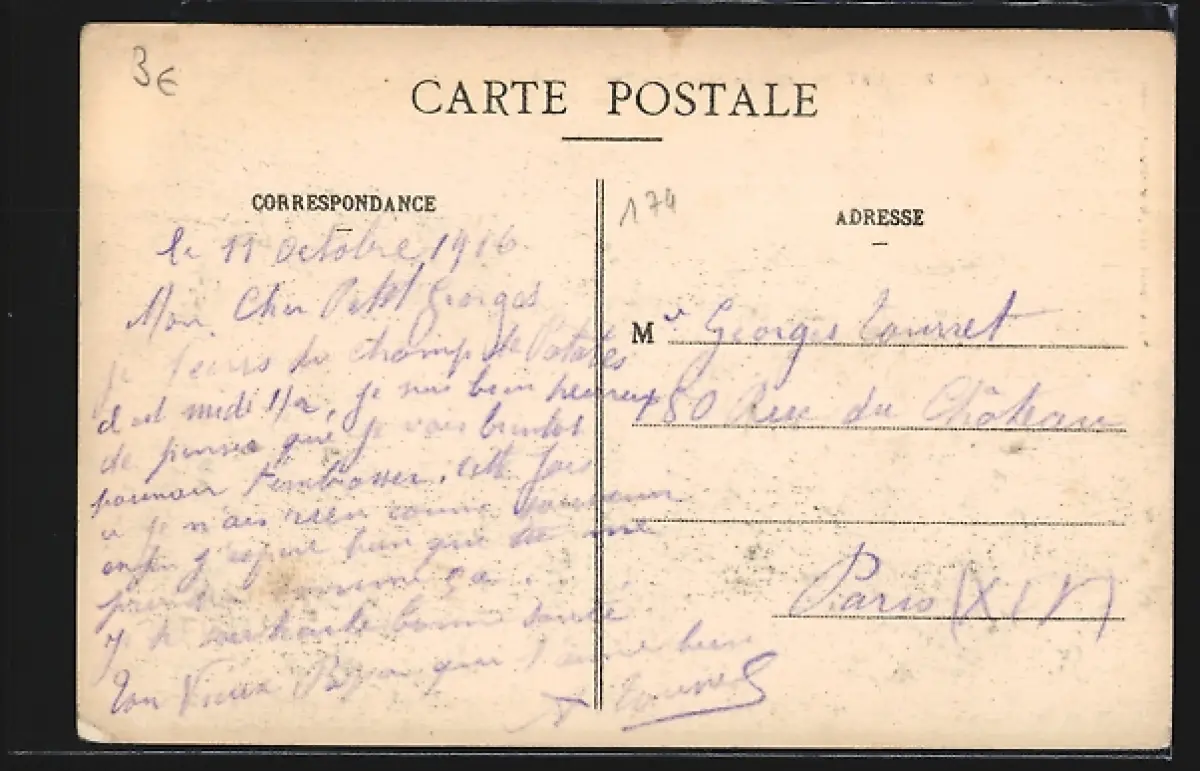 3€
CARTE POSTALE
CORRESPONDANCE
le 11 Octobre 1916
Mon Cher Petit Georges
je du champ de Patates
il est midi 1/2, je suis bien heureux
de penser que je vais bientot
pouvoir t'embrasser. cette fois
ci je n'ai rien comme souvenir
enfin j'espère bien que me
ça.
je te souhaite bonne santé
Ton Vieux qui t'aime bien
Tourret
174
ADRESSE
M Georges Tourret
180 Rue du Château
Paris (XIV)